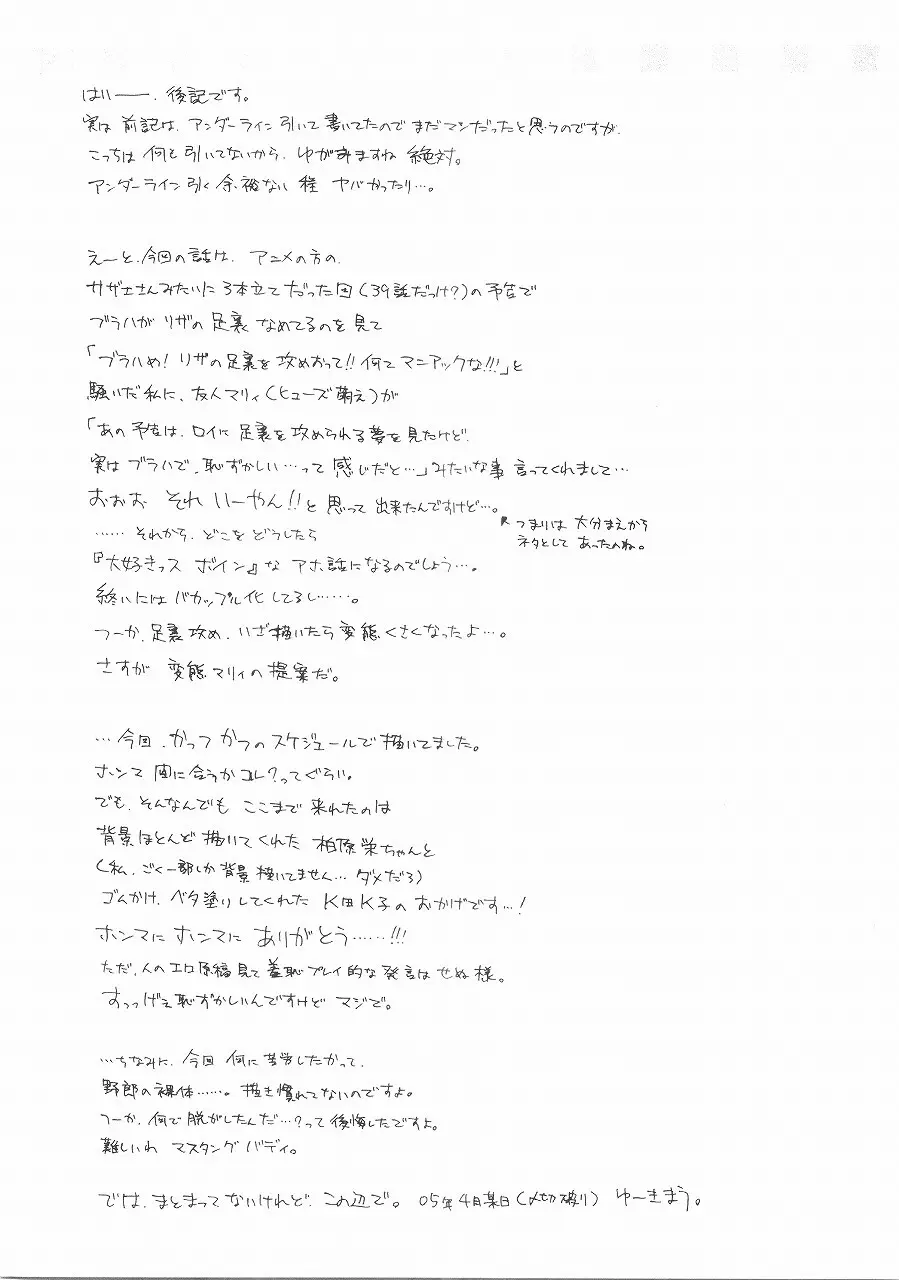 はいー。後記です。
実は前記は、アンダーライン引いて書いてたのでまだマシだったと思うのですが、
こっちは何も引いてないから、ゆがみますね絶対。
アンダーライン引く余裕ない程ヤバかったり…。
えーと、今回の話は、アニメの方の、
サザエさんみたいに3本立てだった回(39話だっけ?)の予告で
ブラハがリザの足裏なめてるのを見て
「ブラハめ!リザの足裏を攻めおって!!何てマニアックな!!!」と
騒いだ私に、友人マリィ(ヒューズ萌え)が
「あの予告は、ロイに足裏を攻められる夢を見たけど、
実はブラハで、恥ずかしい…って感じだと…」みたいな事言ってくれまして…
おぉお それ いーやん!!と思って出来たんですけど…。
つまりは大分まえから
ネタとしてあったのね。
……それから、どこをどうしたら
『大好きっス ボイン』なアホ話になるのでしょう…。
終いにはバカップル化してるし……。
つーか、足裏攻め、いざ描いたら変態くさくなったよ…。
さすが変態マリィの提案だ。
…今回、かつつかつのスケジュールで描いてました。
ホンマ間に合うかコレ?ってぐらい。
でも、そんなんでもここまで来れたのは
背景ほとんど描いてくれた柏原栄ちゃんと
(私、ごく一部しか背景描いてません…ダメだろ)
ゴムかけ、ベタ塗りしてくれたK田K子のおかげです…!
ホンマにホンマにありがとう……!!!
ただ、人のエロ原稿見て羞恥プレイ的な発言はせぬ様。
すっっげぇ恥ずかしいんですけどマジで。
…ちなみに、今回何に苦労したかって、
野郎の裸体……。描き慣れてないのですよ。
つーか、何で脱がしたんだ…?って後悔したですよ。
難しいわ マスタングバディ。
では、まとまってないけれど、この辺で。 05年4月某日(〆切破り) ゆーきまう。